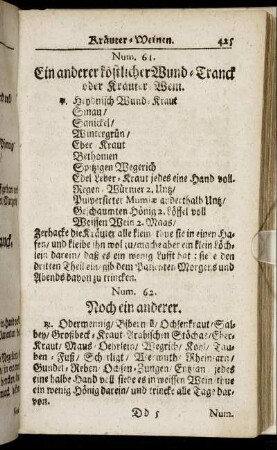 Kräuter-Weinen. 425
Num. 61.
Ein anderer köstlicher Wund-Tranck
oder Kräuter-Wein.
℞. Heydnisch Wund-Kraut
Sinau/
Sanickel/
Wintergrün/
Eber-Kraut
Bethonien
Spitzigen Wegerich
Edel Leber-Kraut jedes eine Hand voll.
Regen-Würmer 2. Untz/
Pulverisirter Mumiæ anderthalb Untz/
Geschaumten Hönig 2. Löffel voll
Weissen Wein 2. Maas/
Zerhacke die Kräuter alle klein/ thue sie in einen Ha-
fen/ und kleibe ihn wol zu/mache aber ein klein Löch-
lein darein/ daß es ein wenig Lufft hat: siede den
dritten Theil ein/gib dem Patienten Morgens und
Abends davon zu trincken.
Num. 62.
Noch ein anderer.
℞. Odermennig/ Ochsenkraut/ Sal-
bey/ Kraut Arabischen Stöchas/ Eber-
Kraut/ Maus-Oehrlein/ Wegrich/ Tau-
ben-Fuß/ Wermuth/ Rheinfarn/
Gundel-Reben/ Ochsen-Zungen/ Entzian/ jedes
eine halbe Hand voll siede es in weissen Wein/ thue
ein wenig Hönig darein/ und trincke alle Tage dar-
von.
Dd 5 Num.